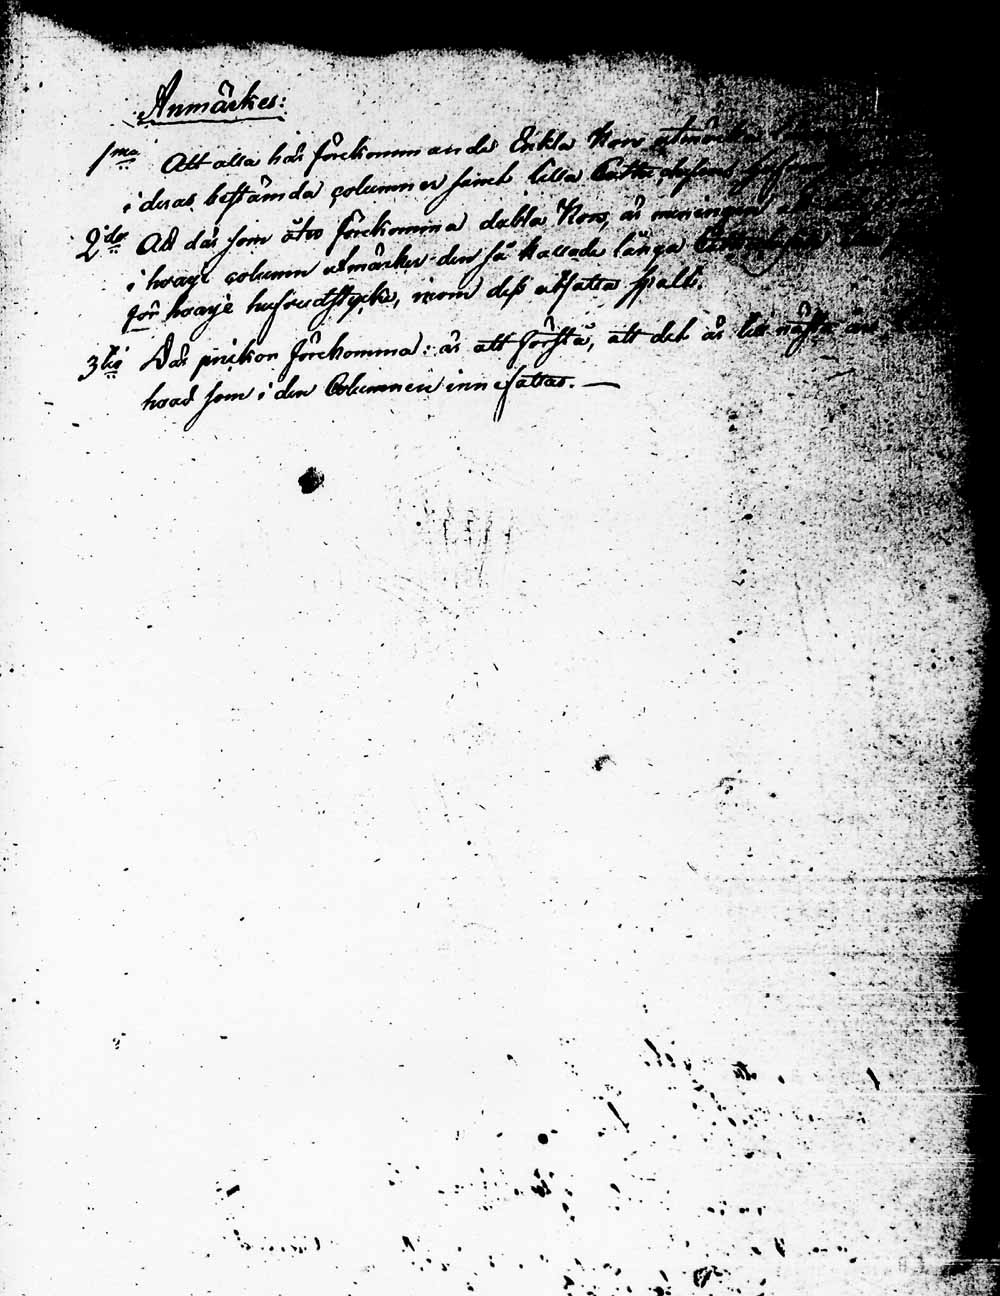 Anmärkes:
1ma Att alla här förekommande Enkla Nor utmärka
i deras bestämda columner samt lilla
2do At där som åtro förekomma dubla Nor, är meningen at
i hvarje column utmärker den så kallade långa
för hvarje hufvudstycke, inom dess utsatta spalt.
3tio Där prickor förekomma: är att förstå, att det är lika
hvad som i den Columnen innefattas. —